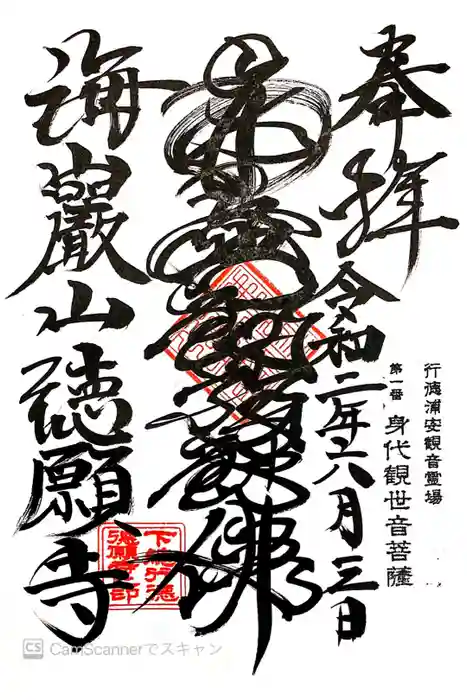 奉拝
令和二年六月三日
行徳浦安観音霊場
第一番 身代観世音菩薩
南無阿弥陀佛
海巖山
徳願寺
下総行徳
徳願寺印
CS CamScannerでスキャン